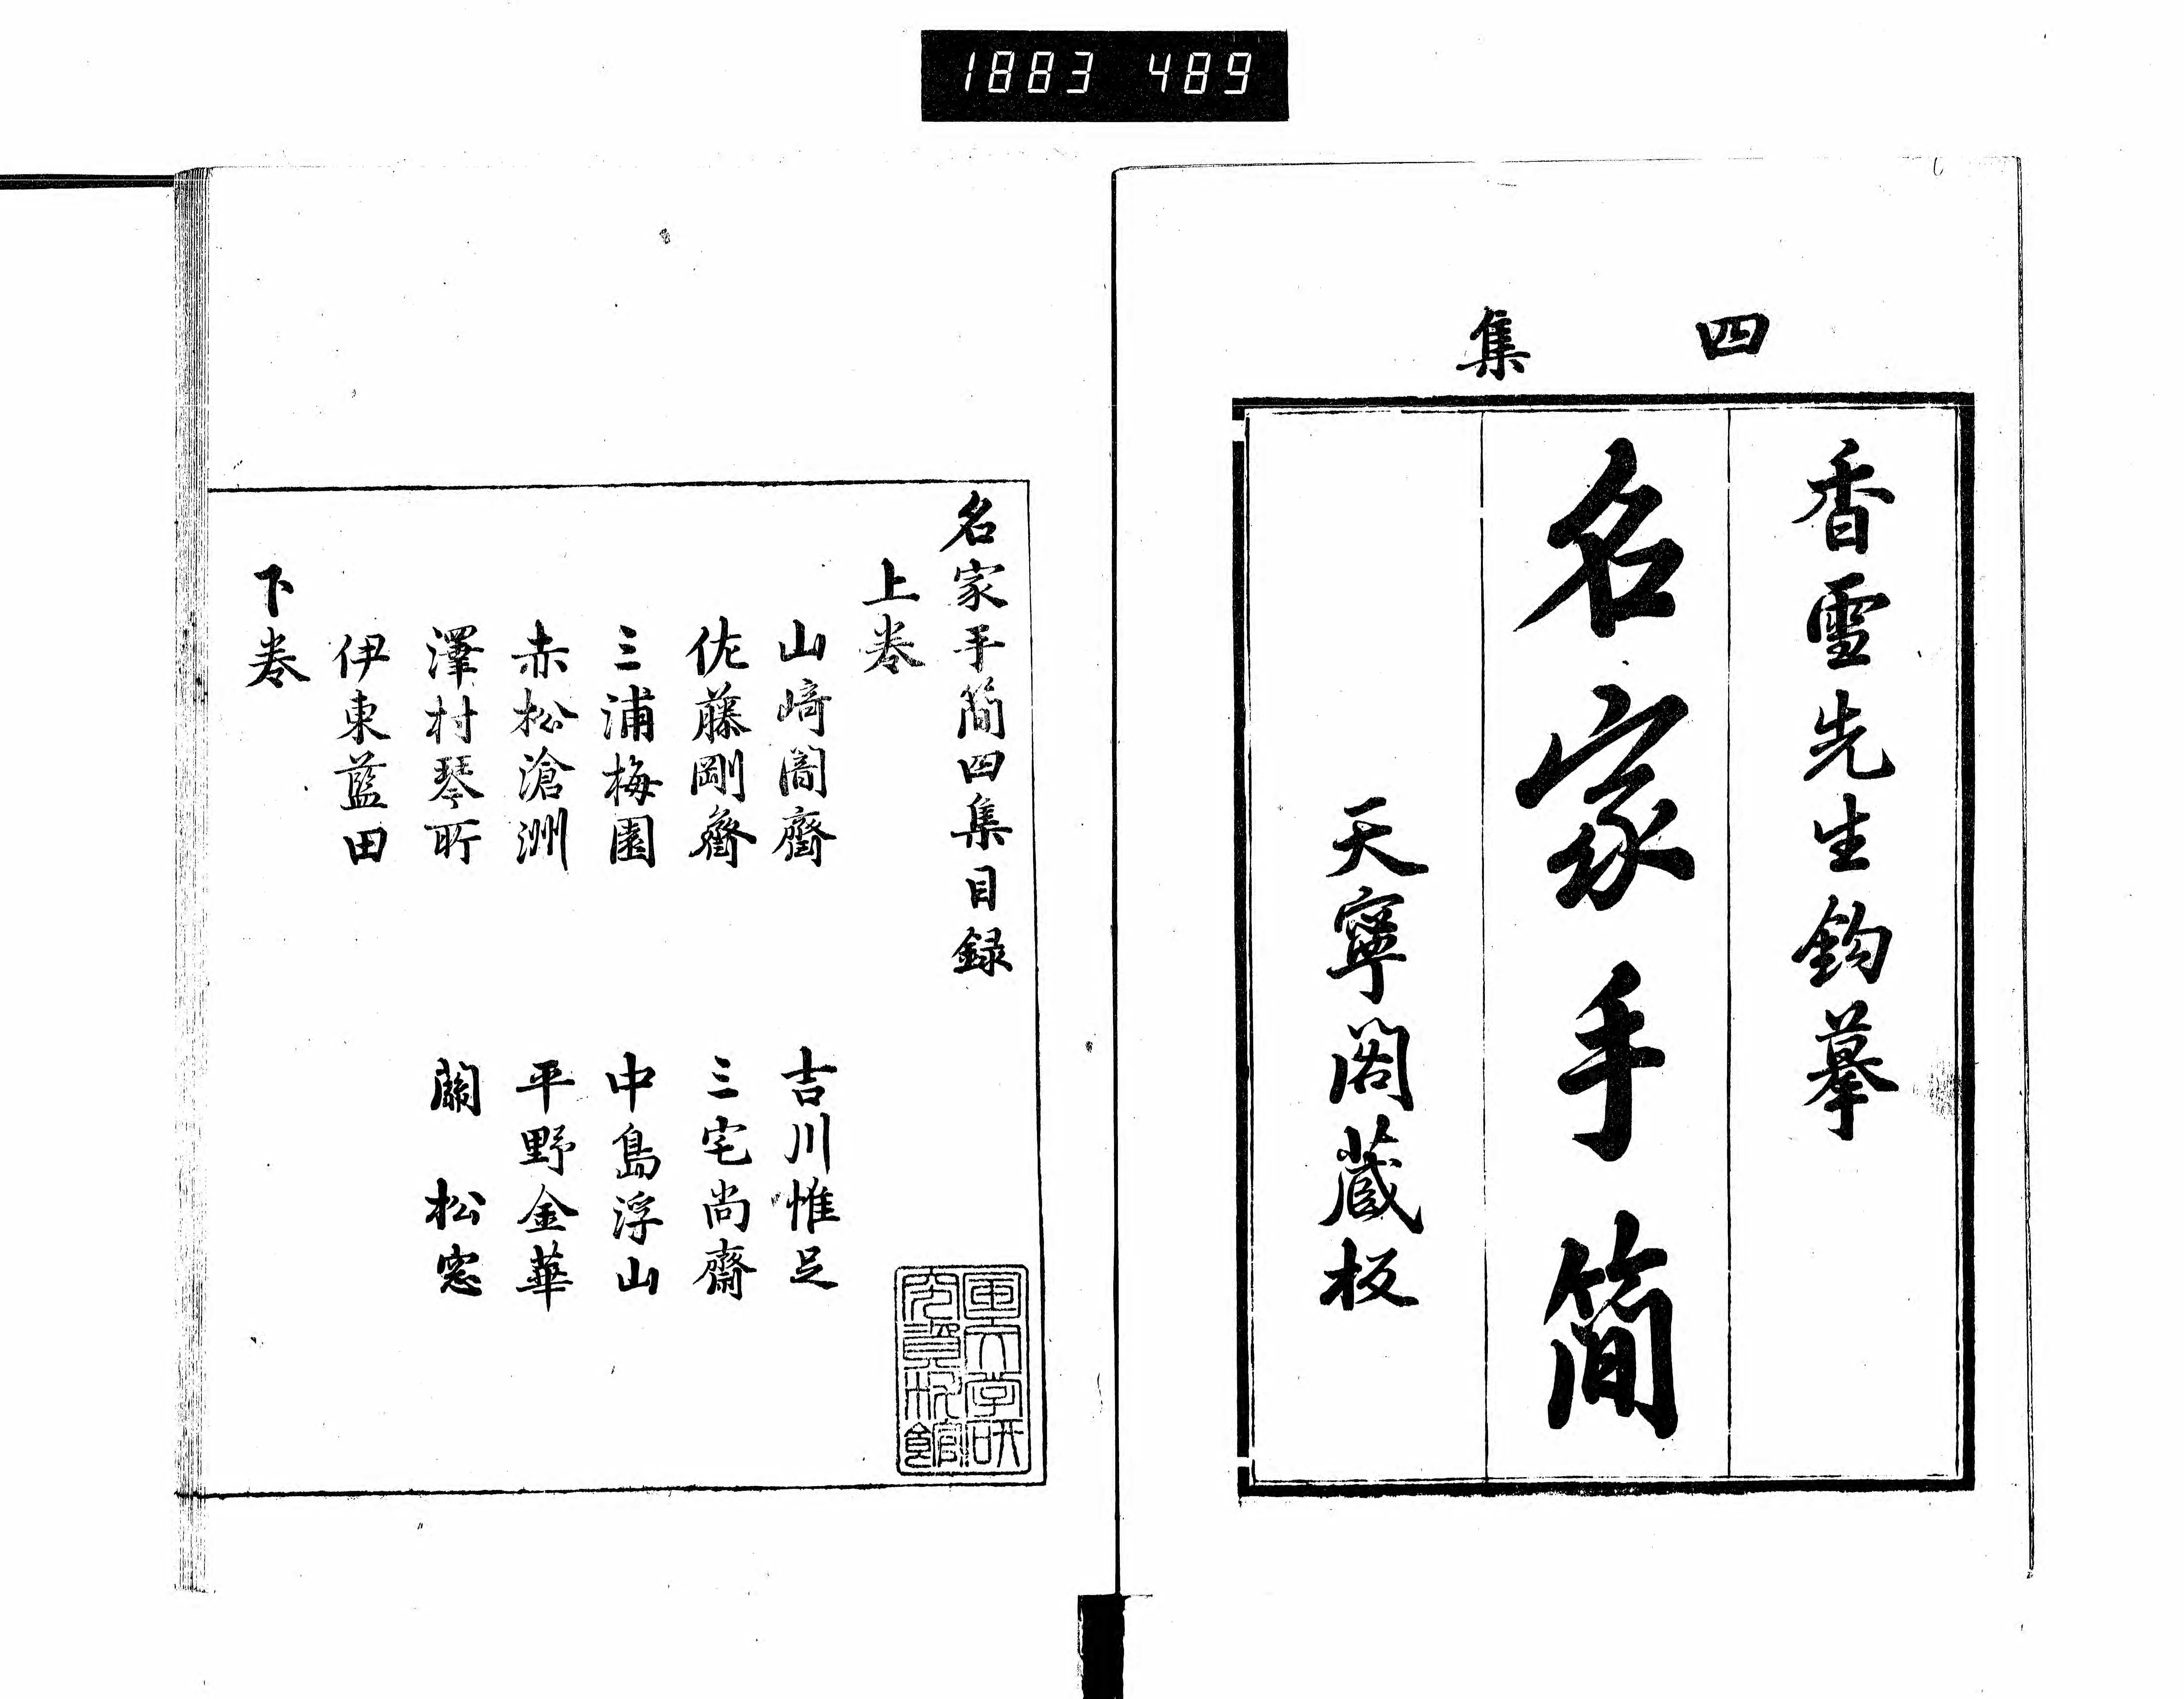 1883 489
四集
香雪先生鈎摹
名家手簡
天寧閣蔵板
名家手簡四集目録
上巻
山﨑闇齋
吉川惟足
佐藤剛齋
三宅尚齋
三浦梅園
中島浮山
赤松滄洲
平野金華
澤村琴所
關松窓
伊東藍田
下巻
国文学研究資料館